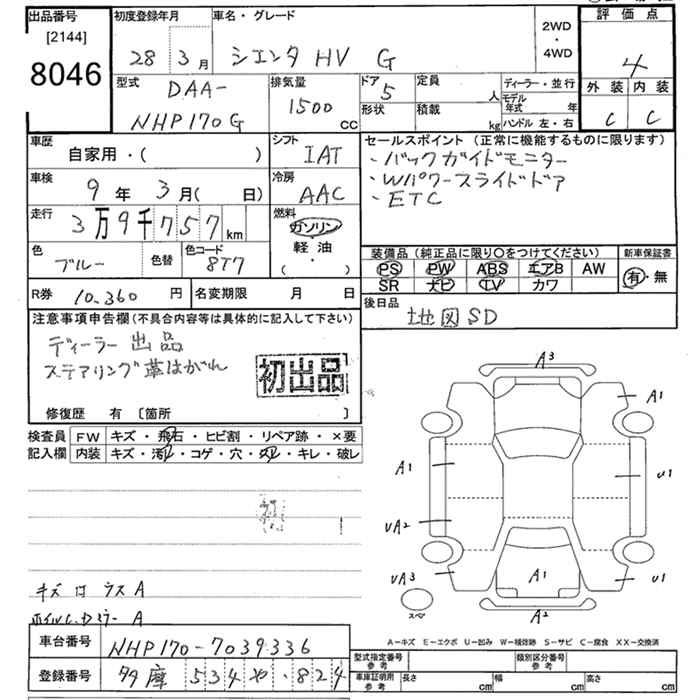 出品番号
[2144]
8046
初度登録年月
28 3月
車名・グレード
シエンタ HV G
2WD
・
4WD
評価点
4
外装 内装
C C
型式
DAA-
NHP170G
排気量
1500
cc
ドア
5
定員
人
形状
積載
kg
ディーラー・並行
モデル年式 年
ハンドル 左・右
車歴
自家用・( )
シフト
IAT
車検
9年 3月( 日)
冷房
AAC
走行
3万9千757
km
燃料
ガソリン
・
軽油
( ・ )
色
ブルー
色替
色コード
8T7
R券 10.360 円
名変期限 月 日
セールスポイント (正常に機能するものに限ります)
・バックガイドモニター
・Wパワースライドドア
・ETC
装備品(純正品に限り○をつけてください)
PS PW ABS エアB AW
SR ナビ TV カワ
新車保証書
有・無
後日品
地図SD
注意事項申告欄(不具合内容等は具体的に記入して下さい)
ディーラー出品
ステアリング革はがれ
初出品
修復歴 有 [箇所 ]
検査員
記入欄
FW キズ・飛石・ヒビ割・リペア跡・×要
内装 キズ・汚レ・コゲ・穴・スレ・キレ・破レ
A3
A1
A1
U1
UA2
UA3
A1
U1
A2
スペア
キズ ガラス A
ホイルC.Dミラー A
A-キズ E-エクボ U-凹み W-補修跡 S-サビ C-腐食 XX-交換済
車台番号 NHP170-7039336
登録番号 多摩 534 や ・824
型式指定番号
参考
類別区分番号
参考
車庫証明用
参考
長さ cm
幅 cm
高さ cm